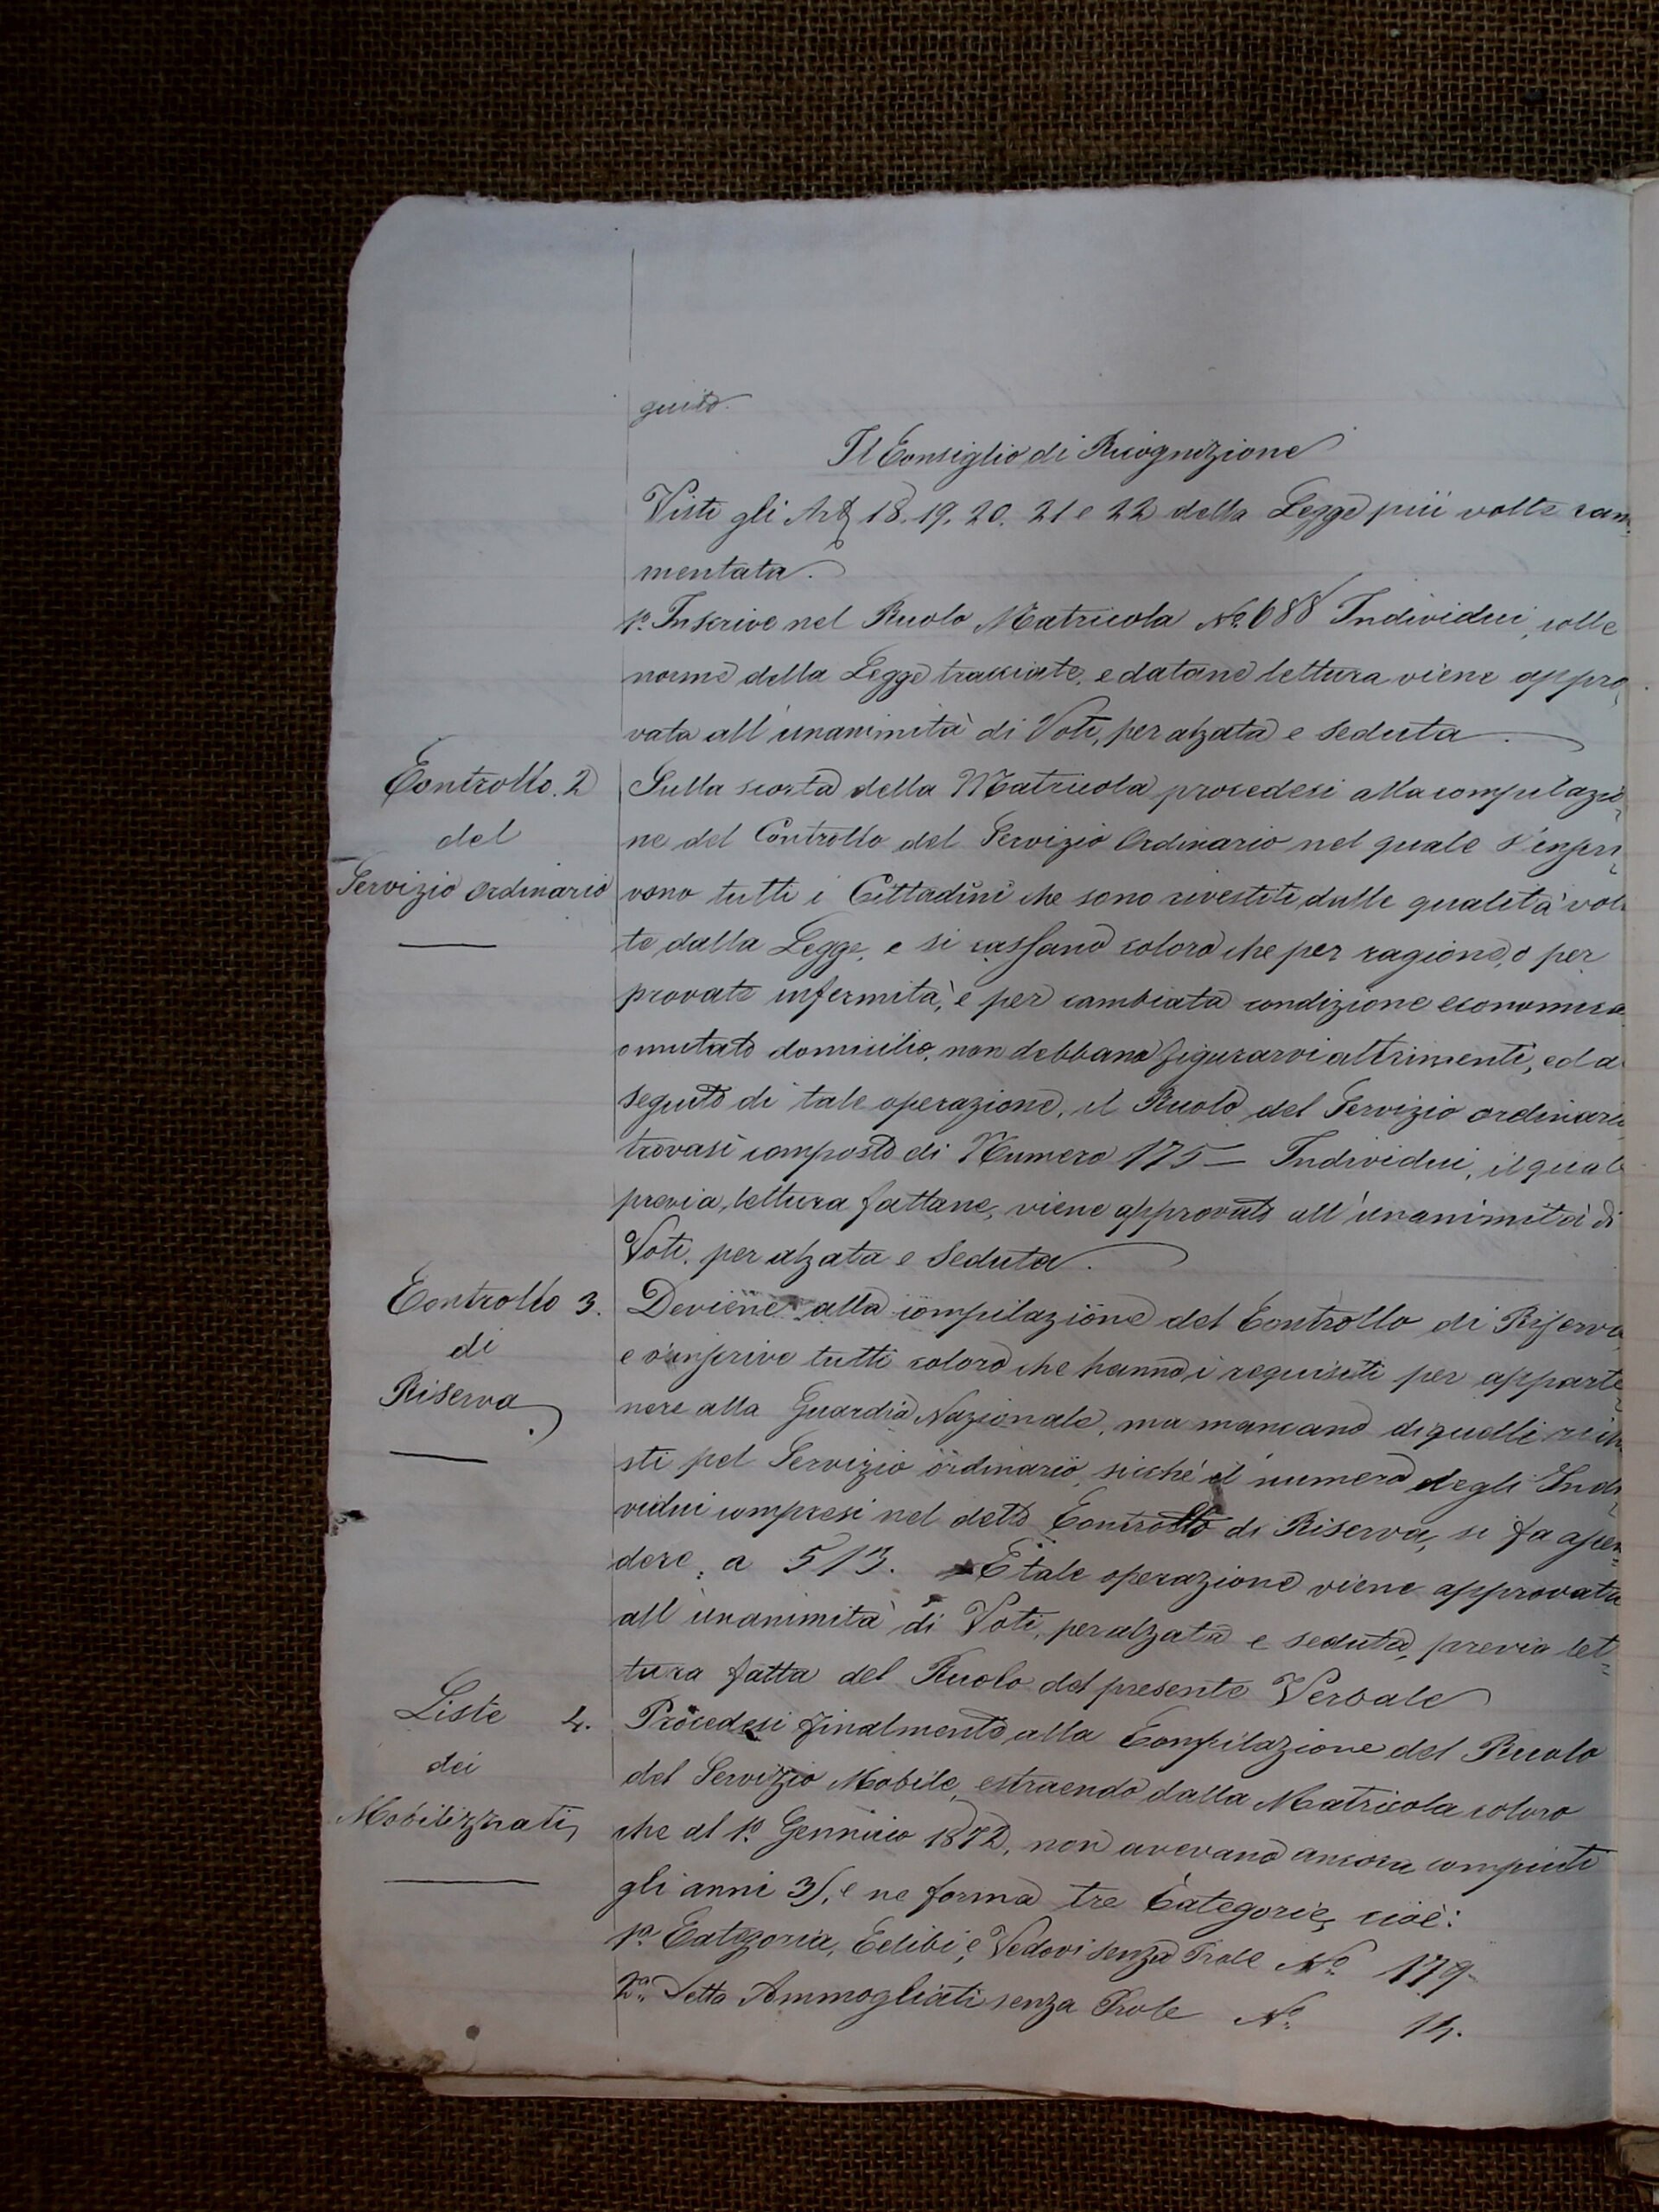 guito.
Il Consiglio di Ricognizione
Visti gli Art. 18. 19. 20. 21 e 22 della Legge più volte ram=
mentata.
1º. Inscrive nel Ruolo Matricola Nº. 688 Individui, colle
norme della Legge tracciate, e datane lettura viene appro=
vata all'unanimità di Voti, per alzata e seduta.
Controllo. 2
del
Servizio ordinario
Sulla scorta della Matricola procedesi alla compilazio=
ne del Controllo del Servizio Ordinario nel quale s'inscri=
vono tutti i Cittadini che sono rivestiti dalle qualità vol=
te dalla Legge, e si cassano coloro che per ragione, o per
provate infermità, e per cambiata condizione economica
o mutato domicilio, non debbano figurarvi altrimenti, ed a
seguito di tale operazione, il Ruolo del Servizio ordinario
trovasi composto di Numero 175 — Individui, il quale
previa, lettura fattane, viene approvato all'unanimità di
Voti. per alzata e seduta.
Controllo 3.
di
Riserva.
Deviene alla compilazione del Controllo di Riserva
e v'inscrive tutti coloro che hanno i requisiti per apparte=
nere alla Guardia Nazionale, ma mancano di quelli richie
sti pel Servizio ordinario, sicché il numero degli Indi=
vidui compresi nel detto Controllo di Riserva, si fa ascen=
dere, a 513. E tale operazione viene approvata
all'unanimità di Voti, per alzata e seduta, previa let=
tura fatta del Ruolo del presente Verbale
Liste 4.
dei
Mobilizzati
Procedesi finalmente alla Compilazione del Ruolo
del Servizio Mobile, estraendo dalla Matricola coloro
che al 1º. Gennaio 1872, non avevano ancora compiuti
gli anni 35, e ne forma tre Categorie, cioè:
1ª. Categoria, Celibi, e Vedovi senza Prole Nº. 179
2ª. Detta Ammogliati senza Prole Nº. 14.